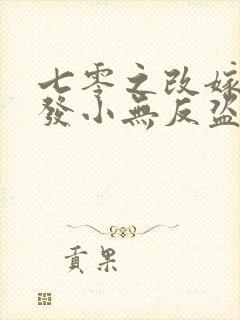 七零之改嫁
發小無反盜
貢果